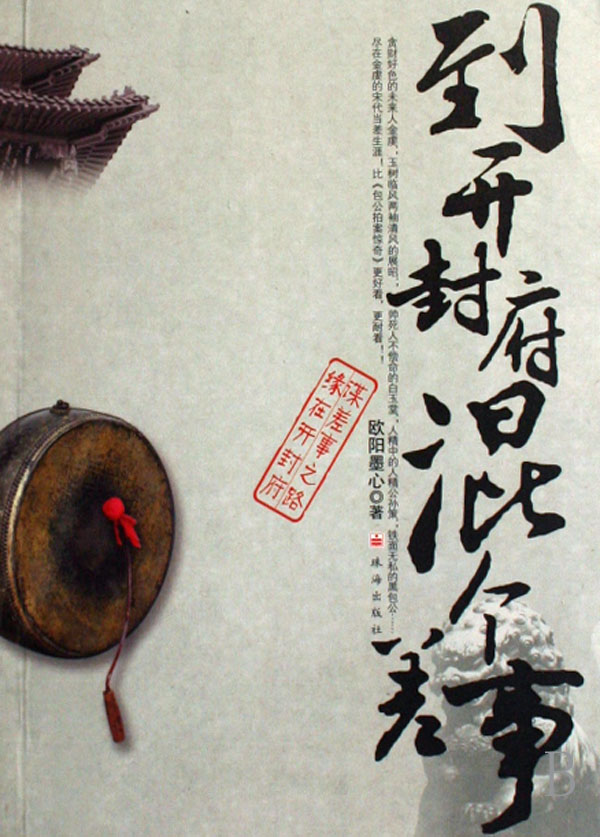 到开封府混个差事
贪财好色的未来人金虔,玉树临风两袖清风的展昭,帅死人不偿命的白玉堂,人精中的人精公孙策,铁面无私的黑包公……
尽在金虔的宋代当差生涯!比《包公拍案惊奇》更好看,更耐看!!
欧阳墨心◎著
珠海出版社
谋差事之路
缘在开封府